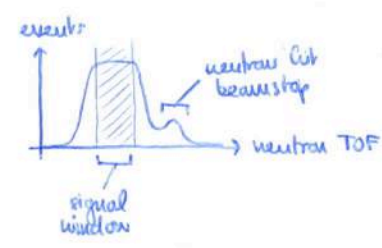 events
neutrons hit
beamstop
neutron TOF
signal
window